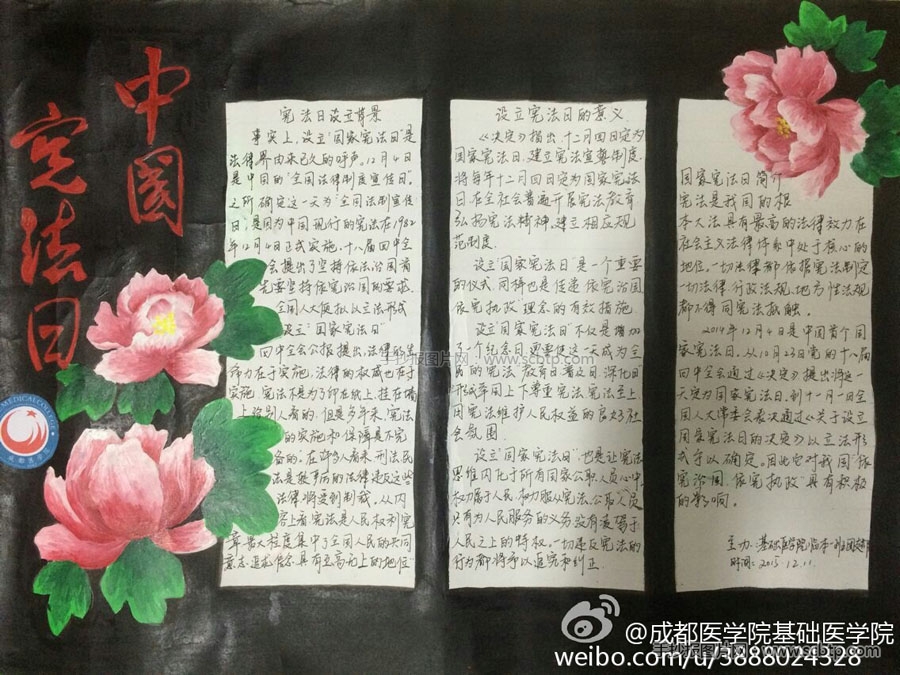 中国
宪法日
宪法日设立背景
事实上，设立"国家宪法日"是
法律界由来已久的呼声。12月4日
是中国的"全国法律制度宣传日"。
之所确定这一天为"全国法制宣传
日，是因为中国现行的宪法在1982
年12月4日正式实施，十八届四中全
会提出了坚持依法治国首
先要坚持依宪治国的要求，
全国人大便拟以立法形式
设立"国家宪法日"
四中全会公报提出，法律的生
命力在于实施，法律的权威也在于
实施。宪法不是为了印在纸上，挂在墙
上说别人看的，但是多年来，宪法
的实施和保障是不完
备的，在许多人看来，刑法民
法是敬畏的法律违反这些
法律将受到制裁，从内
容上看宪法是人民权利宪
章最大程度集中了全国人民的共同
意志
具有至高无上的地位
设立宪法日的意义
《决定》指出，十二月四日定为
国家宪法日。建立宪法宣誓制度。
将每年十二月四日定为国家宪法
日。在全社会普遍开展宪法教育
弘扬宪法精神。建立相应规
范制度.
设立"国家宪法日"是一个重要
的仪式，同样也是促进依宪治国
依宪执政理念的有效措施。
设立"国家宪法日"不仅是增加
了一个纪念日，更要使这一天成为全
民的宪法"教育日、普及日、深化日"
形成举国上下尊重宪法、宪法至上
用宪法维护人民权益的良好社
会氛围
设立"国家宪法日"也是让宪法
思维内化于所有国家公职人员心中
权力属于人民，权力服从宪法，公职人员
只有为人民服务的义务，没有凌驾于
人民之上的特权，一切违反宪法的
行为都将予以追究和纠正
国家宪法日简介
宪法是我国的根
本大法具有最高的法律效力在
在社会主义法律体系中处于核心的
地位。一切法律都依据宪法制定
一切法律、行政法规、地方性法规
都不得同宪法抵触。
2014年12月4日是中国首个国
家宪法日。从10月23日党的十八届
四中全会通过《决定》提出将这一
天定为国家宪法日。到十一月一日全
国人大常委会表决通过《关于设立
国家宪法日的决定》以立法形
式予以确定。因此它对我国"依
宪治国、依宪执政"具有积极
的影响。
主办：基础医学院临本一班团支部
时间：2015.12.11
MEDICAL COLLEGE
成都医学院
手抄报图片网 www.scbtp.com
@成都医学院基础医学院
手抄报图片网 www.scbtp.com
weibo.com/u/3888024328